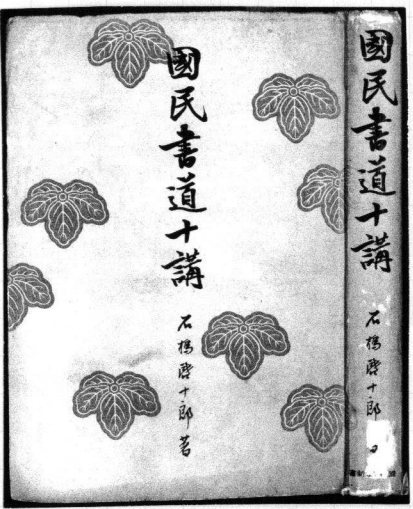 國民書道十講
石橋啓十郎著
國民書道十講
石橋啓十郎